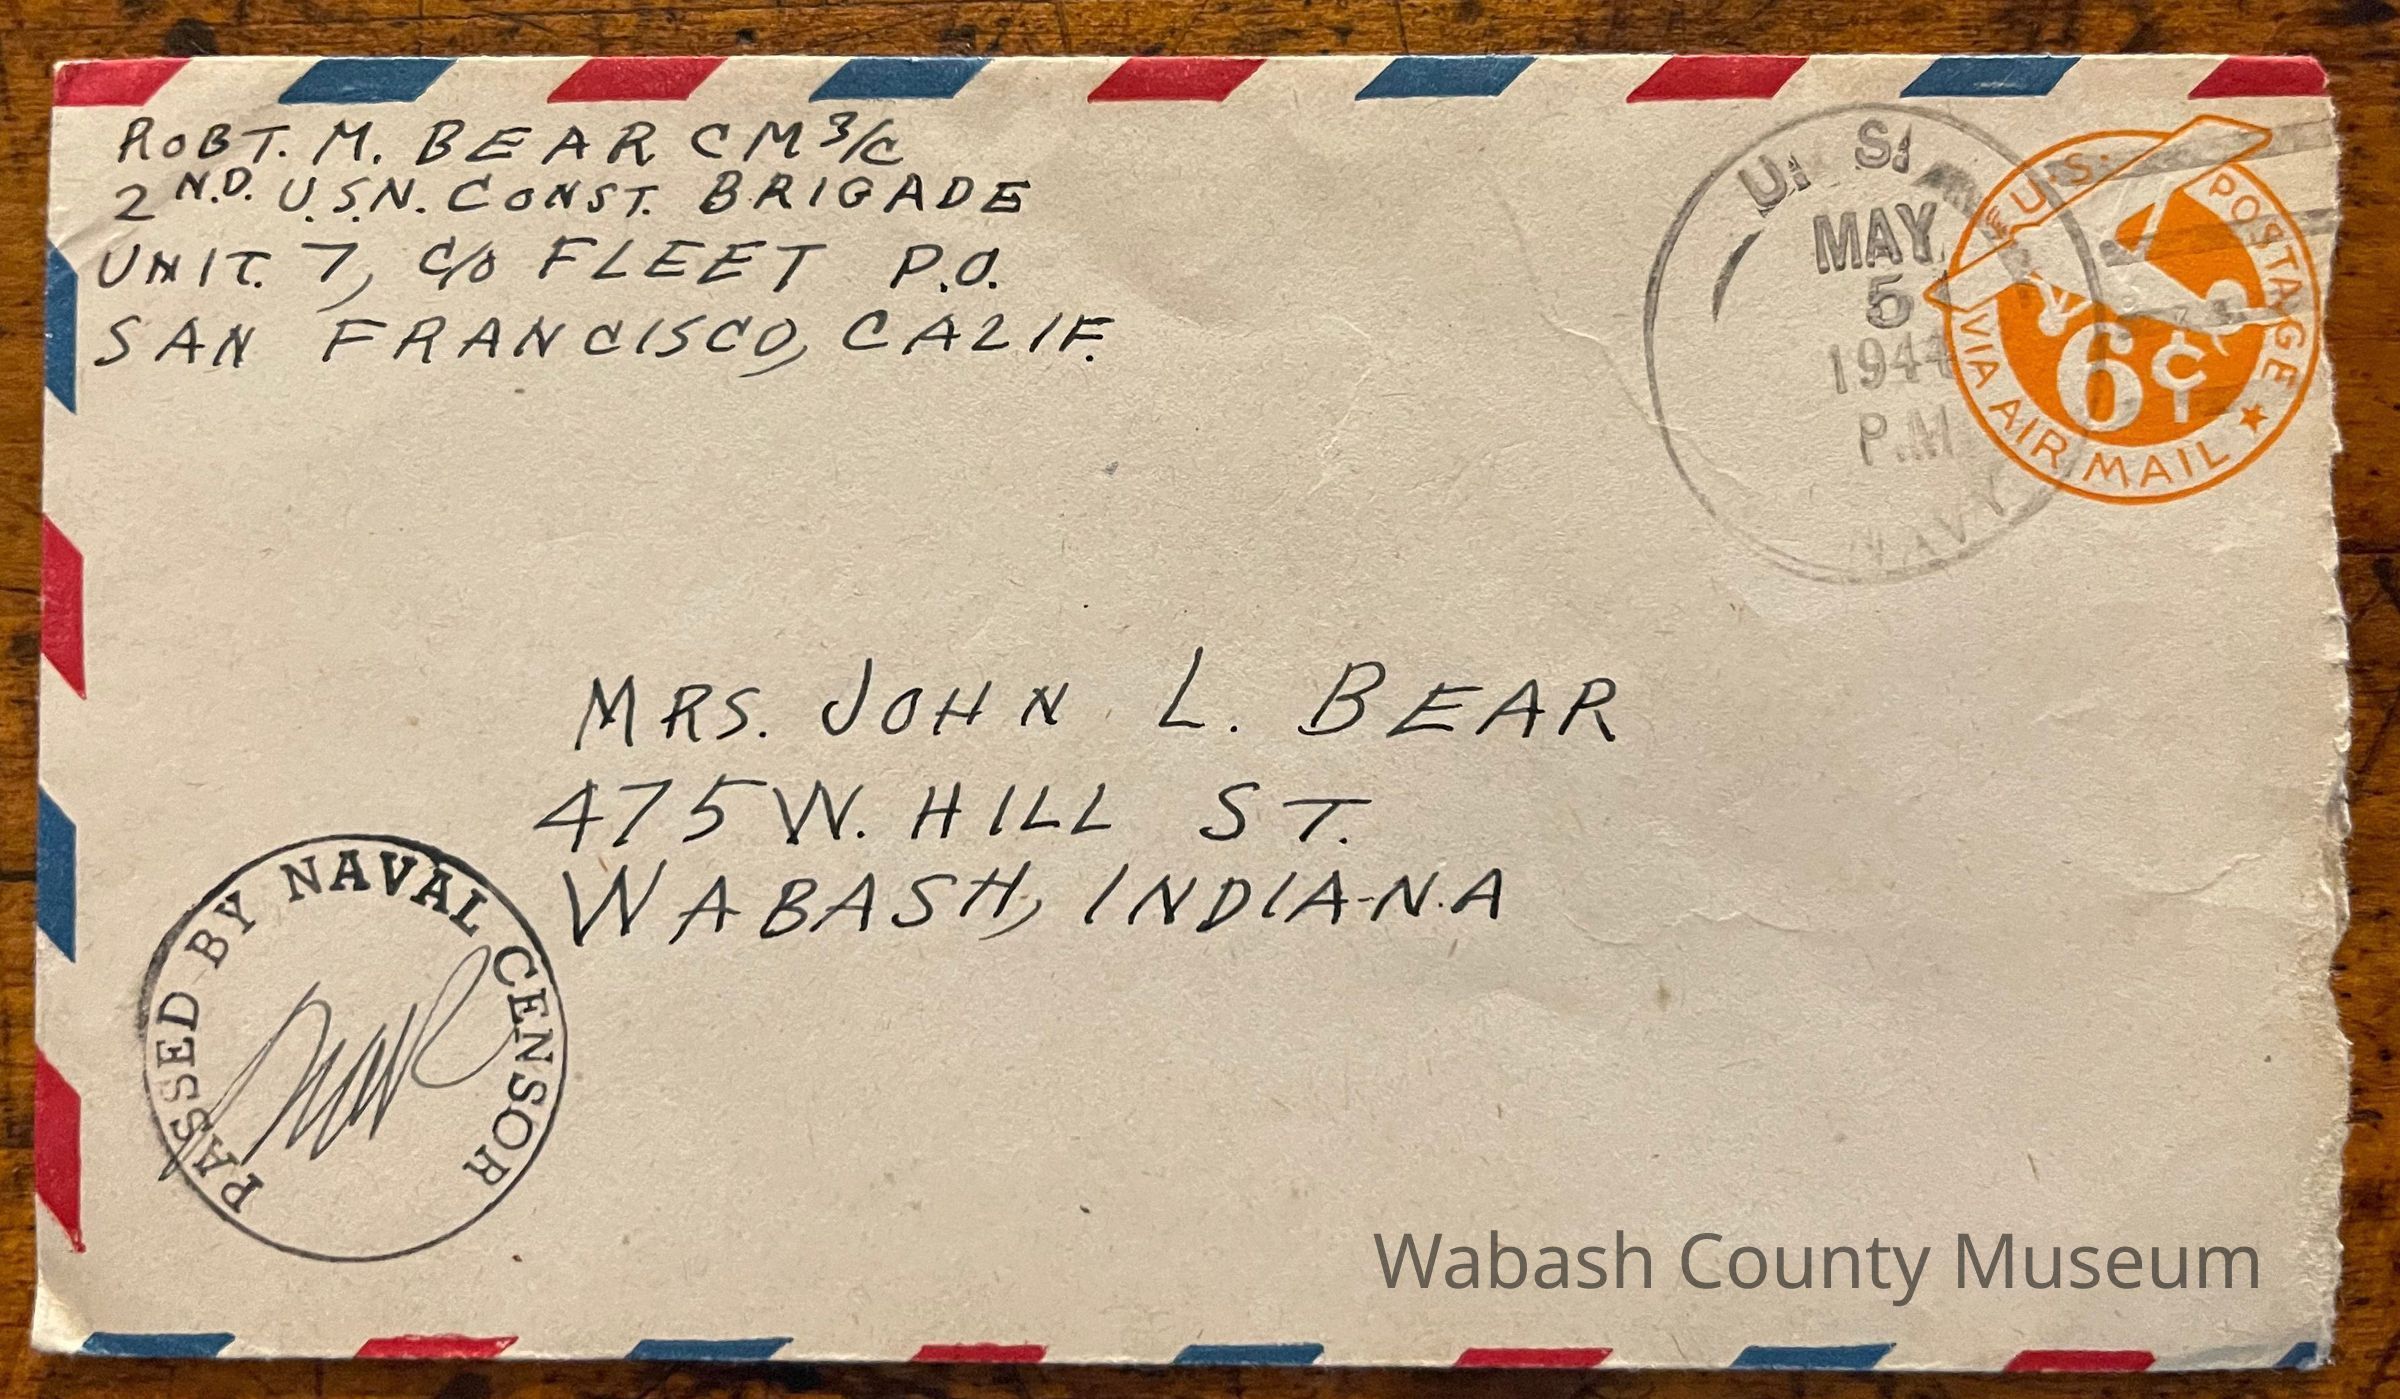 ROBT. M. BEAR CM 3/C
2 N.D. U.S.N. CONST. BRIGADE
UNIT. 7, C/O FLEET P.O.
SAN FRANCISCO, CALIF.
U. S.
MAY
5
1944
P.M
NAVY
U.S. POSTAGE
6¢
VIA AIR MAIL
MRS. JOHN L. BEAR
475 W. HILL ST.
WABASH, INDIANA
PASSED BY NAVAL CENSOR
Wabash County Museum